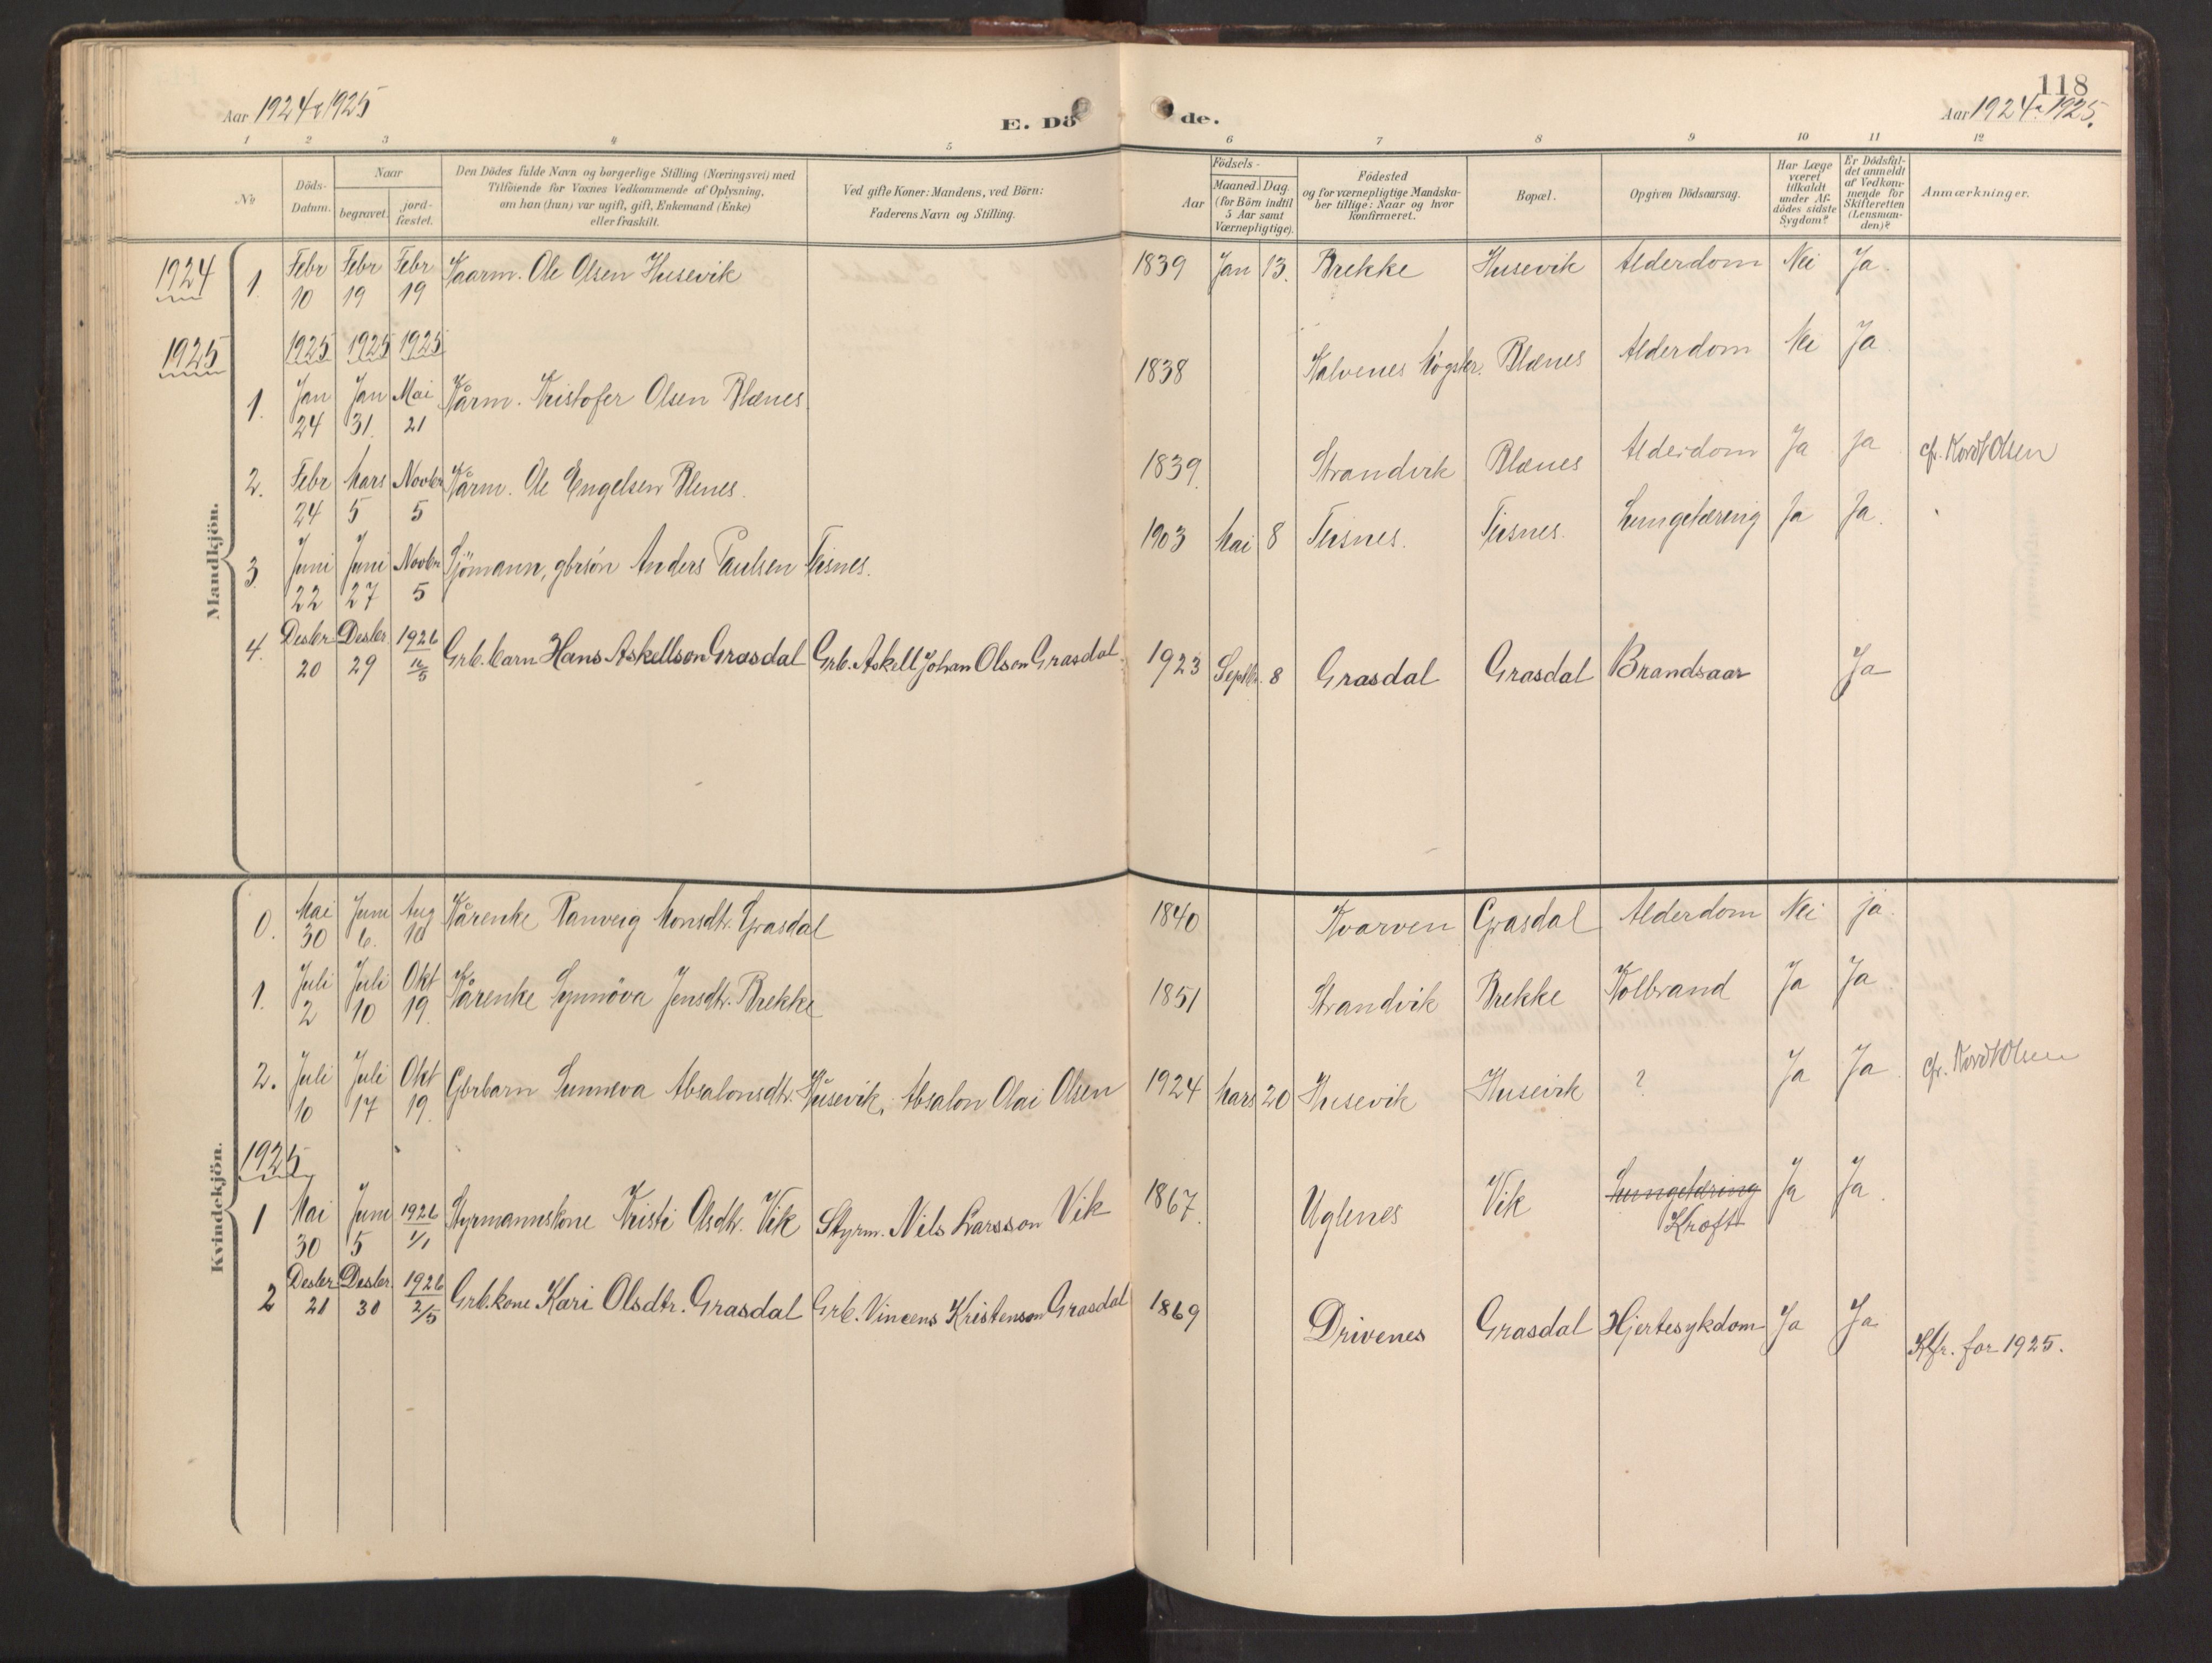 118
Aar 1924 & 1925
E. Döde.
Aar 1924 & 1925.
1 2 3 4 5 6 7 8 9 10 11 12
No
Döds-Datum.
Naar
begravet.
jord-fæstet.
Den Dödes fulde Navn og borgerlige Stilling (Næringsvei) med
Tilföiende for Voxnes Vedkommende af Oplysning,
om han (hun) var ugift, gift, Enkemand (Enke)
eller fraskilt.
Ved gifte Koner: Mandens, ved Börn:
Faderens Navn og Stilling.
Födsels-
Aar
Maaned. Dag.
(for Börn indtil
5 Aar samt
Værnepligtige).
Födested
og for værnepligtige Mandska-
ber tillige: Naar og hvor
konfirmeret.
Bopæl.
Opgiven Dödsaarsag.
Har Læge
været
tilkaldt
under Af-
dödes sidste
Sygdom?
Er Dödsfal-
det anmeldt
af Vedkom-
mende for
Skifteretten
(Lensman-
den)?
Anmærkninger.
Mandkjön.
1924
1. Febr 10 Febr 19 Febr 19 Kaarm. Ole Olsen Husevik 1839 Jan 13. Brekke Husevik Alderdom Nei Ja
1925 1925 1925 1925
1. Jan 24 Jan 31. Mai 21 Kårm. Kristofer Olsen Blænes 1838 Kalvenes Blænes Alderdom Nei Ja
2. Febr 24 Mars 5 Novbr 5 Kårm. Ole Engelsen Blenes. 1839. Strandvik Blænes Alderdom Ja ja cfr. Kordt Olsen
3 Juni 22 Juni 27 Novbr 5 Sjömann, gbrsön Anders Paulsen Teisnes. 1903 Mai 8 Teisnes. Teisnes. Lungetæring Ja Ja.
4. Desbr 20 Desbr 29 1926 16/5 Grb. barn Hans Askellson Grasdal Grb. Askell Johan Olson Grasdal. 1923 Septbr. 8 Grasdal Grasdal Brandsaar Ja
Kvindekjön.
0. Mai 30 Juni 6. Aug 10 Kårenke Ranveig Monsdtr. Grasdal 1840 Kvarven Grasdal Alderdom Nei ja.
1. Juli 2 Juli 10 Okt 19. Kårenke Synnöva Jensdtr. Brekke 1851 Strandvik Brekke Kolbrand Ja Ja
2. Juli 10 Juli 17 Okt 19. Gbrbarn Sunneva Absalonsdtr. Husevik, Absalon Olai Olsen 1924 Mars 20 Husevik Husevik ? Ja Ja cfr. Kordt Olsen
1925
1 Mai 30 Juni 5 1926 1/1 Styrmannskone Kristi Olsdtr. Vik Styrm. Nils Larsson Vik 1867. Uglenes Vik Lungetæring Kræft Ja Ja.
2 Desbr 21 Desbr. 30 1926 2/5 Grb. kone Kari Olsdtr. Grasdal Grb. Vincens Kristenson Grasdal 1869 Drivenes Grasdal Hjertesykdom Ja Ja
Kfr. for 1925.